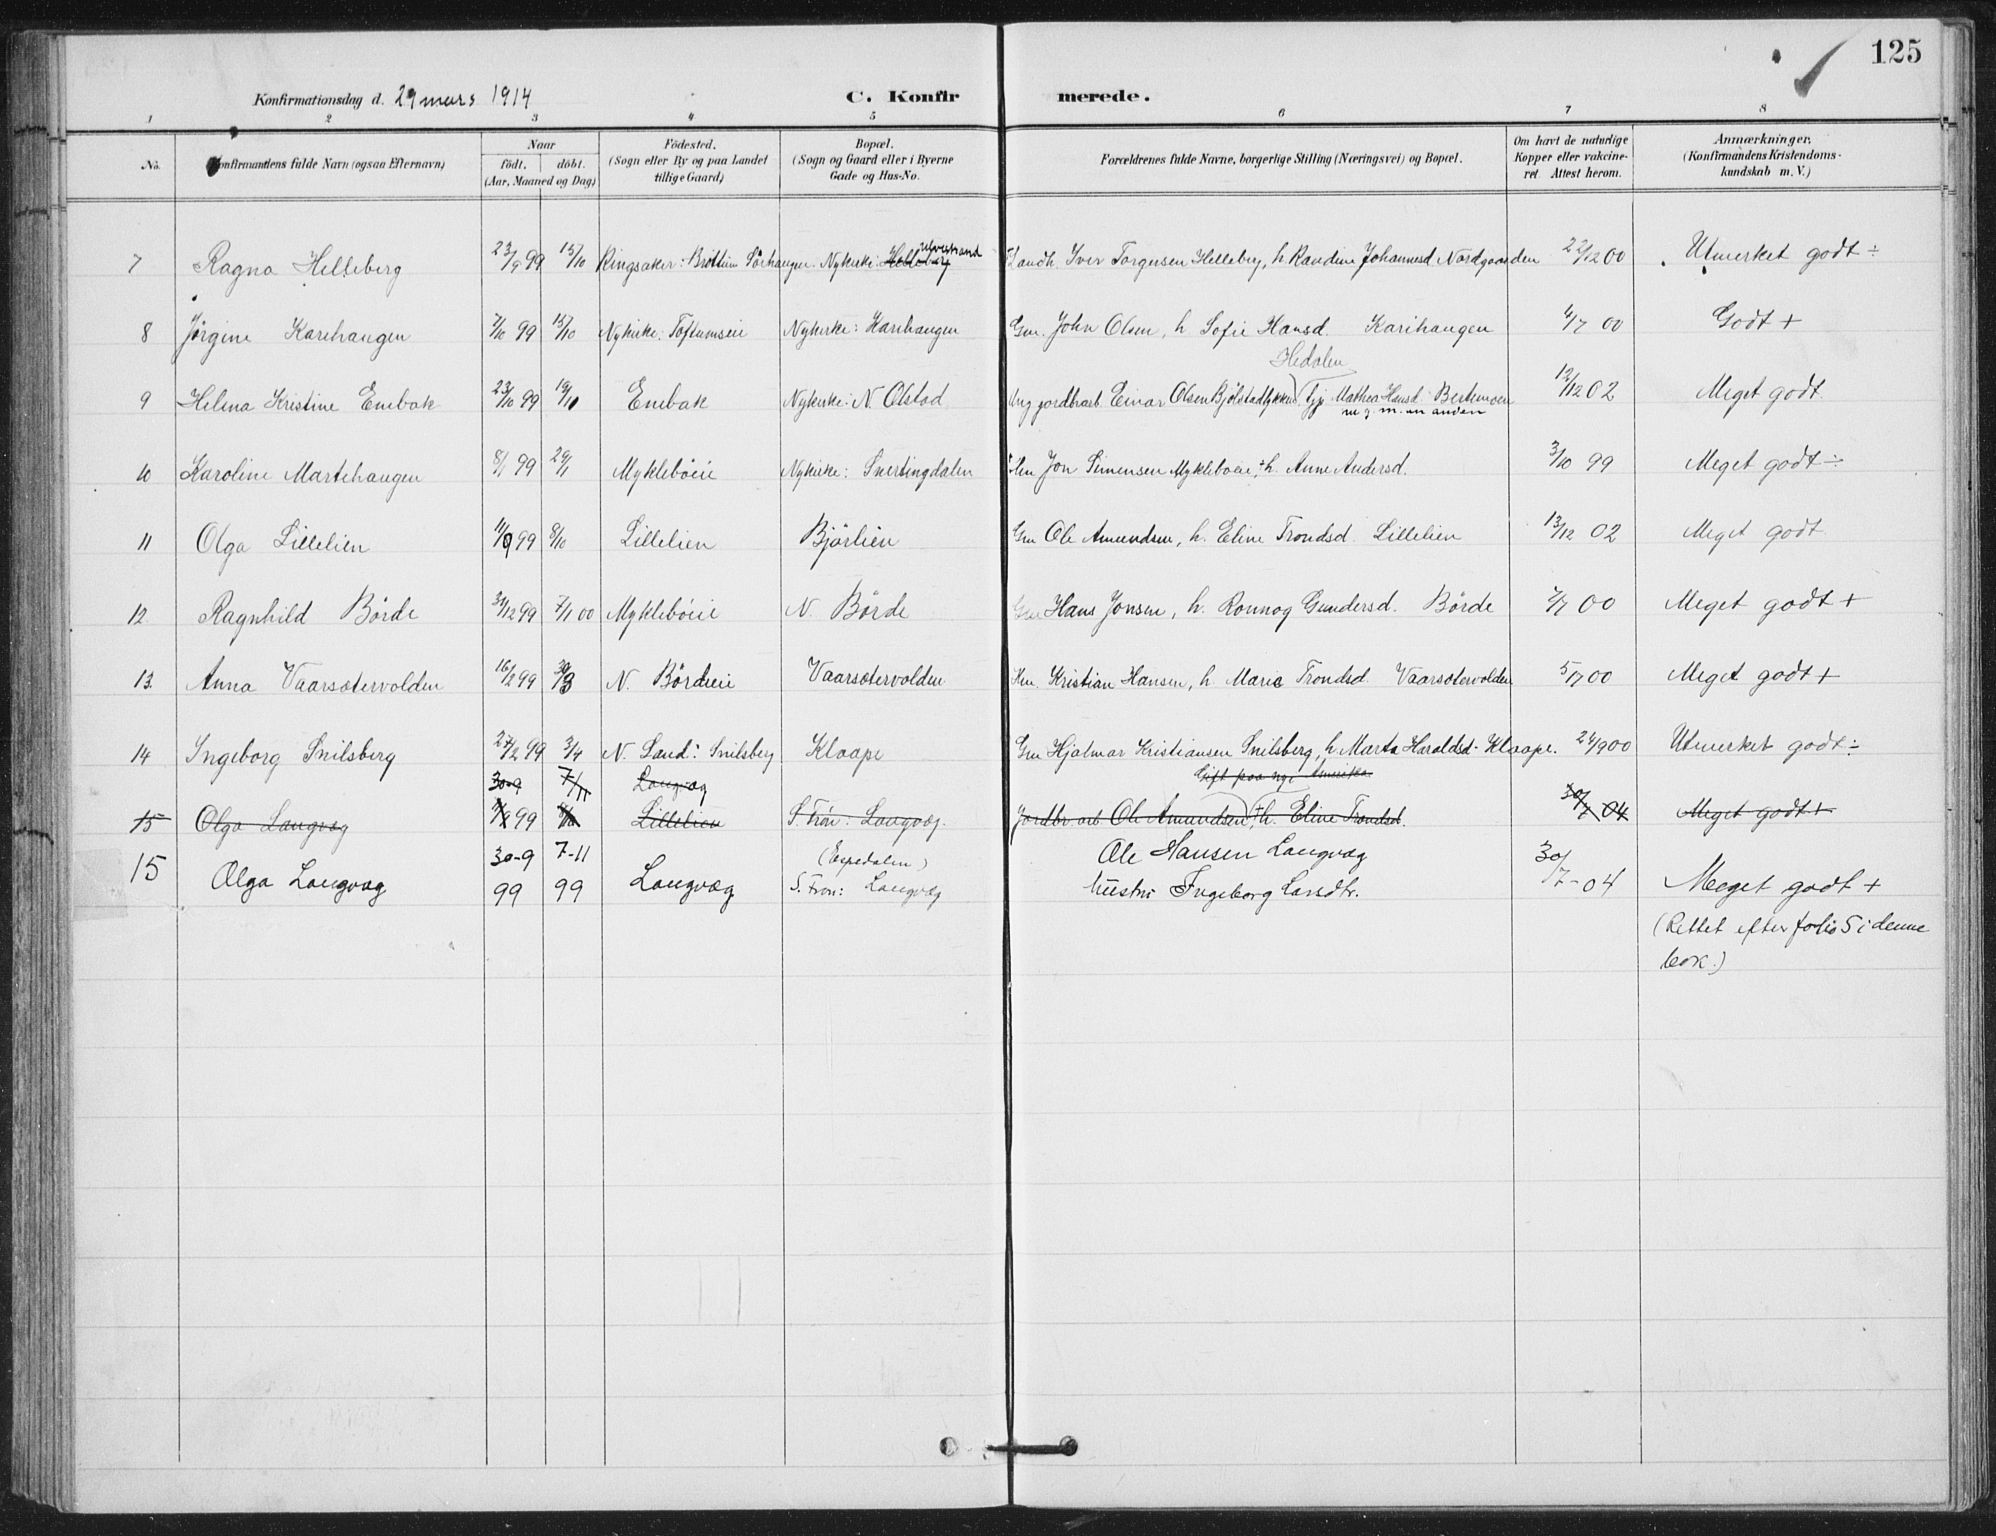 125
Konfirmationsdag d. 29 mars 1914 C. Konfir merede.
1 2 3 4 5 6 7 8
No. Konfirmantens fulde Navn (ogsaa Efternavn) Naar födt. döbt. (Aar, Maaned og Dag) Födested. (Sogn eller By og paa Landet tillige Gaard) Bopæl. (Sogn og Gaard eller i Byerne Gade og Hus-No. Forældrenes fulde Navne, borgerlige Stilling (Næringsvei) og Bopæl. Om havt de naturlige Kopper eller vakcineret. Attest herom. Anmærkninger. (Konfirmandens Kristendomskundskab m. V.)
7 Ragna Helleberg 23/9 99 15/10 Ringsaker: Bröttum Sörhaugen. Nykirke: Helleberg Landh. Iver Torgersen Helleberg, h. Randine Johannesd Nordgaarden 22/12 00 Utmerket godt ÷
8 Jörgine Karihaugen 7/10 99 15/10 Nykirke: Toftumseie Nykirke: Karihaugen Gm. John Olsen, h Sofie Hansd Karihaugen 4/7 00 Godt +
Hedalen
9 Helena Kristine Enebak 23/10 99 19/11 Enebak Nykirke: N. Olstad Ung. jordbrarb. Einar Olsen Bjölstadlykken. Pige Mathea Hansd Bertemoen 12/12 02 Meget godt.
n. g. m. en anden
10 Karoline Martehaugen 8/1 99 29/1 Mykleböeie Nykirke: Snertingdalen Jon Simensen Mykleböeie, + h. Anne Andersd. 3/10 99 Meget godt ÷
11 Olga Lillelien 11/9 99 8/10 Lillelien Björlien Gm Ole Amundsen, h. Eline Trondsd Lillelien 13/12 02 Meget godt.
12 Ragnhild Börde 31/12 99 7/1 00 Mykleböeie N. Börde Gm Hans Jonsen, h. Ronnog Gundersd. Börde 7/7 00 Meget godt +
13. Anna Vaarsætervolden 16/2 99 30/3 N. Bördeeie Vaarsætervolden Kristian Hansen, h. Marie Trondsd Vaarsætervolden 5/7 00 Meget godt +
14 Ingeborg Snilsberg 27/2 99 3/4 N. Land: Snilsberg Klaape Gm Hjalmar Kristiansen Snilsberg, h. Marta Haroldsd - Klaape. 24/9 00 Utmerket godt ÷
30-9 7/11 Langvæg Gift paa nyt Amerika
15 Olga Langvæg 99 Lillelien S. Fron: Langvæg. Jordbr. arb Ole Amundsen, + h. Eline Trondsd. 30/7 04 Meget godt +
15 Olga Langvæg 30-9 99 7-11 99 Langvæg (Espedalen) S. Fron: Langvæg Ole Hansen Langvæg hustru Ingeborg Larsdtr. 30/7-04 Meget godt +
(Rettet efter folio 5 i denne
bok.)